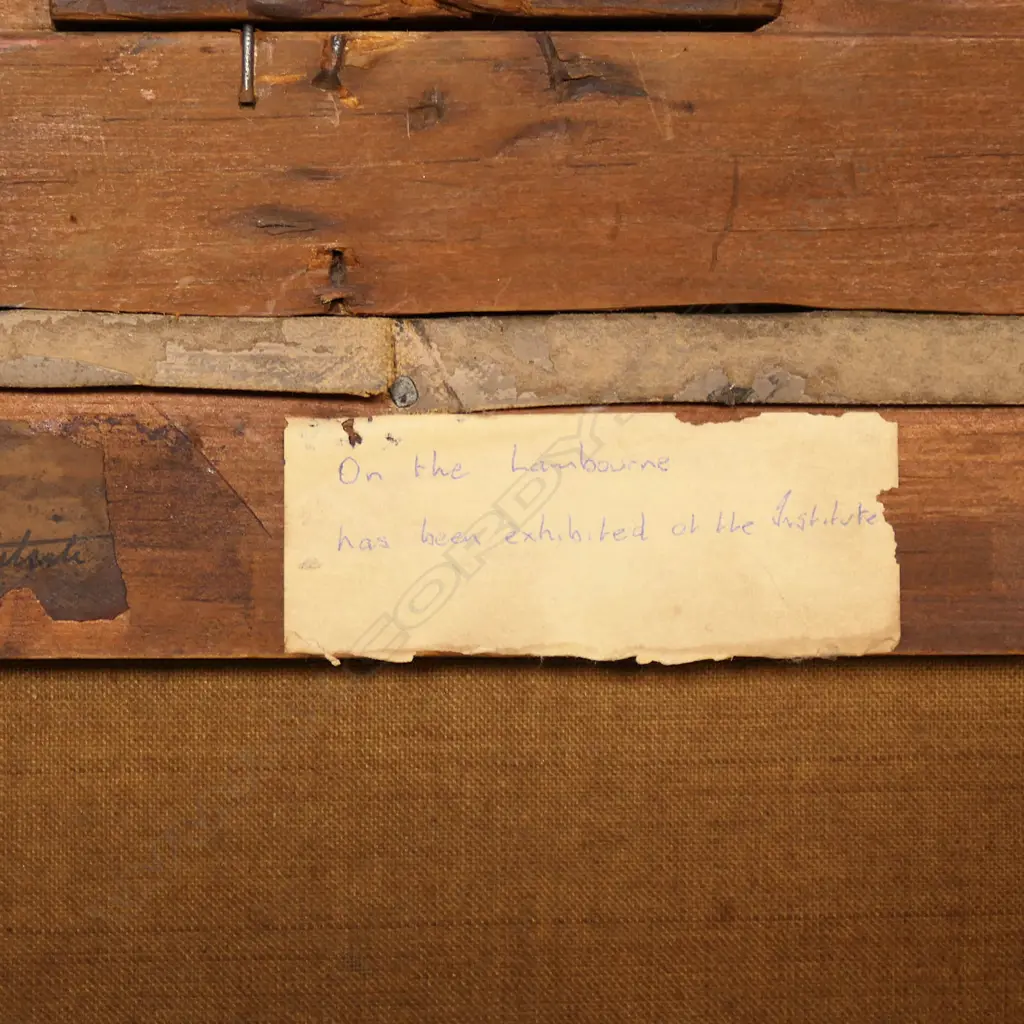 On the Lambourne
has been exhibited at the Institute